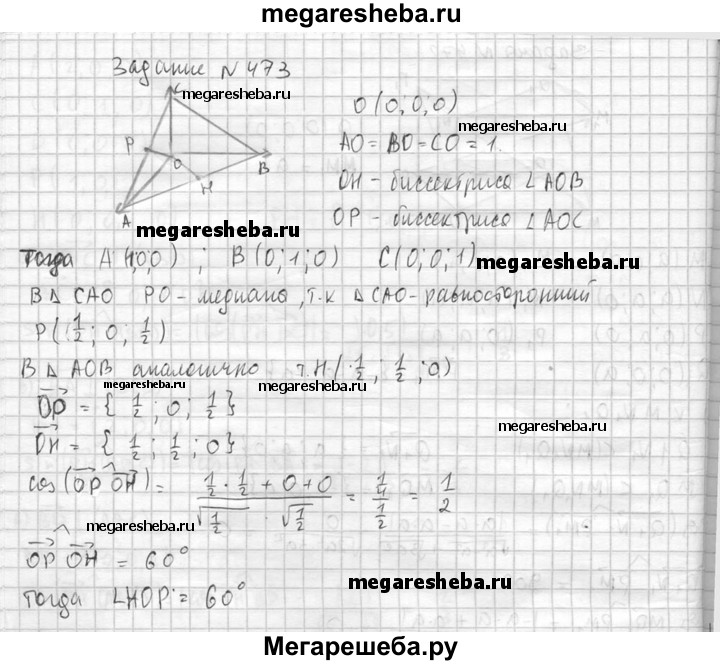 megaresheba.ru
Задание № 473
C
megaresheba.ru
P
O
B
H
A
O (0; 0; 0)
megaresheba.ru
AO = BO = CO = 1.
OH - биссектриса ∠ AOB
OP - биссектриса ∠ AOC
megaresheba.ru
Тогда A (1;0;0) ; B (0; 1; 0) C (0; 0; 1) megaresheba.ru
В Δ CAO PO - медиана, т.к Δ CAO - равносторонний
P ( 1/2 ; 0 ; 1/2 )
В Δ AOB аналогично т. H ( 1/2 ; 1/2 ; 0 )
megaresheba.ru megaresheba.ru
OP = { 1/2 ; 0 ; 1/2 }
megaresheba.ru
OH = { 1/2 ; 1/2 ; 0 }
cos (OP OH) = (1/2 · 1/2 + 0 + 0) / (√1/2 · √1/2) = (1/4) / (1/2) = 1/2
megaresheba.ru
OP OH = 60°
megaresheba.ru
тогда ∠HOP = 60°
Мегарешеба.ру